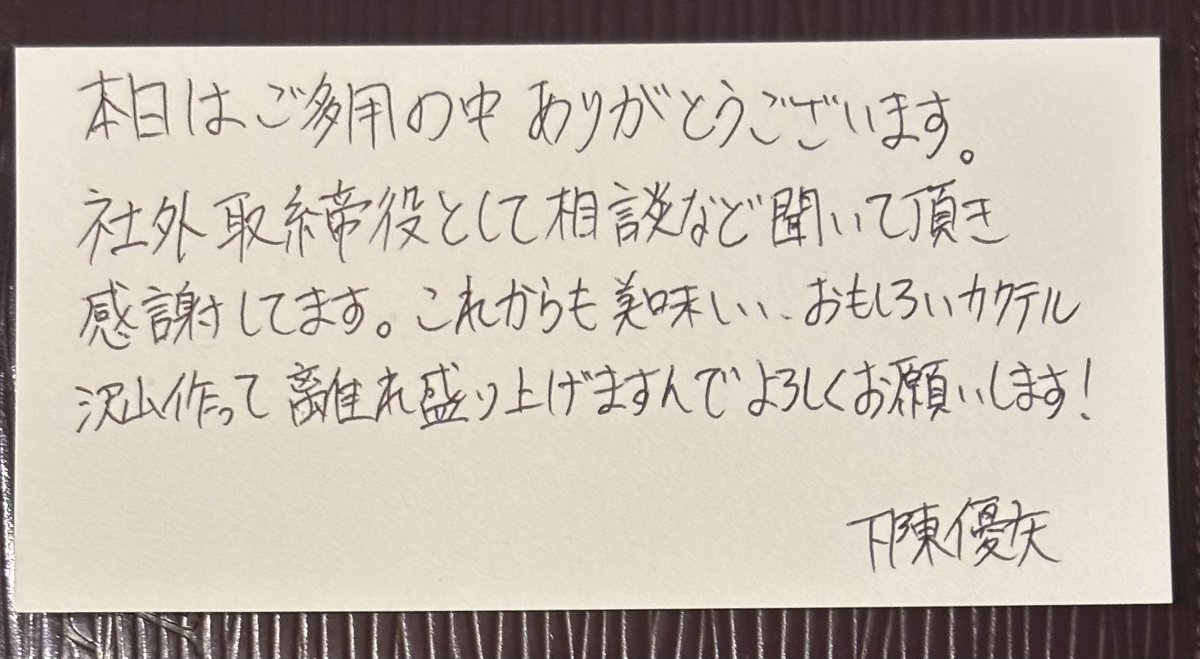 本日はご多用の中ありがとうございます。
社外取締役として相談など聞いて頂き
感謝してます。これからも美味しい、おもしろいカクテル
沢山作って離れ盛り上げますんでよろしくお願いします!
下陳優矢